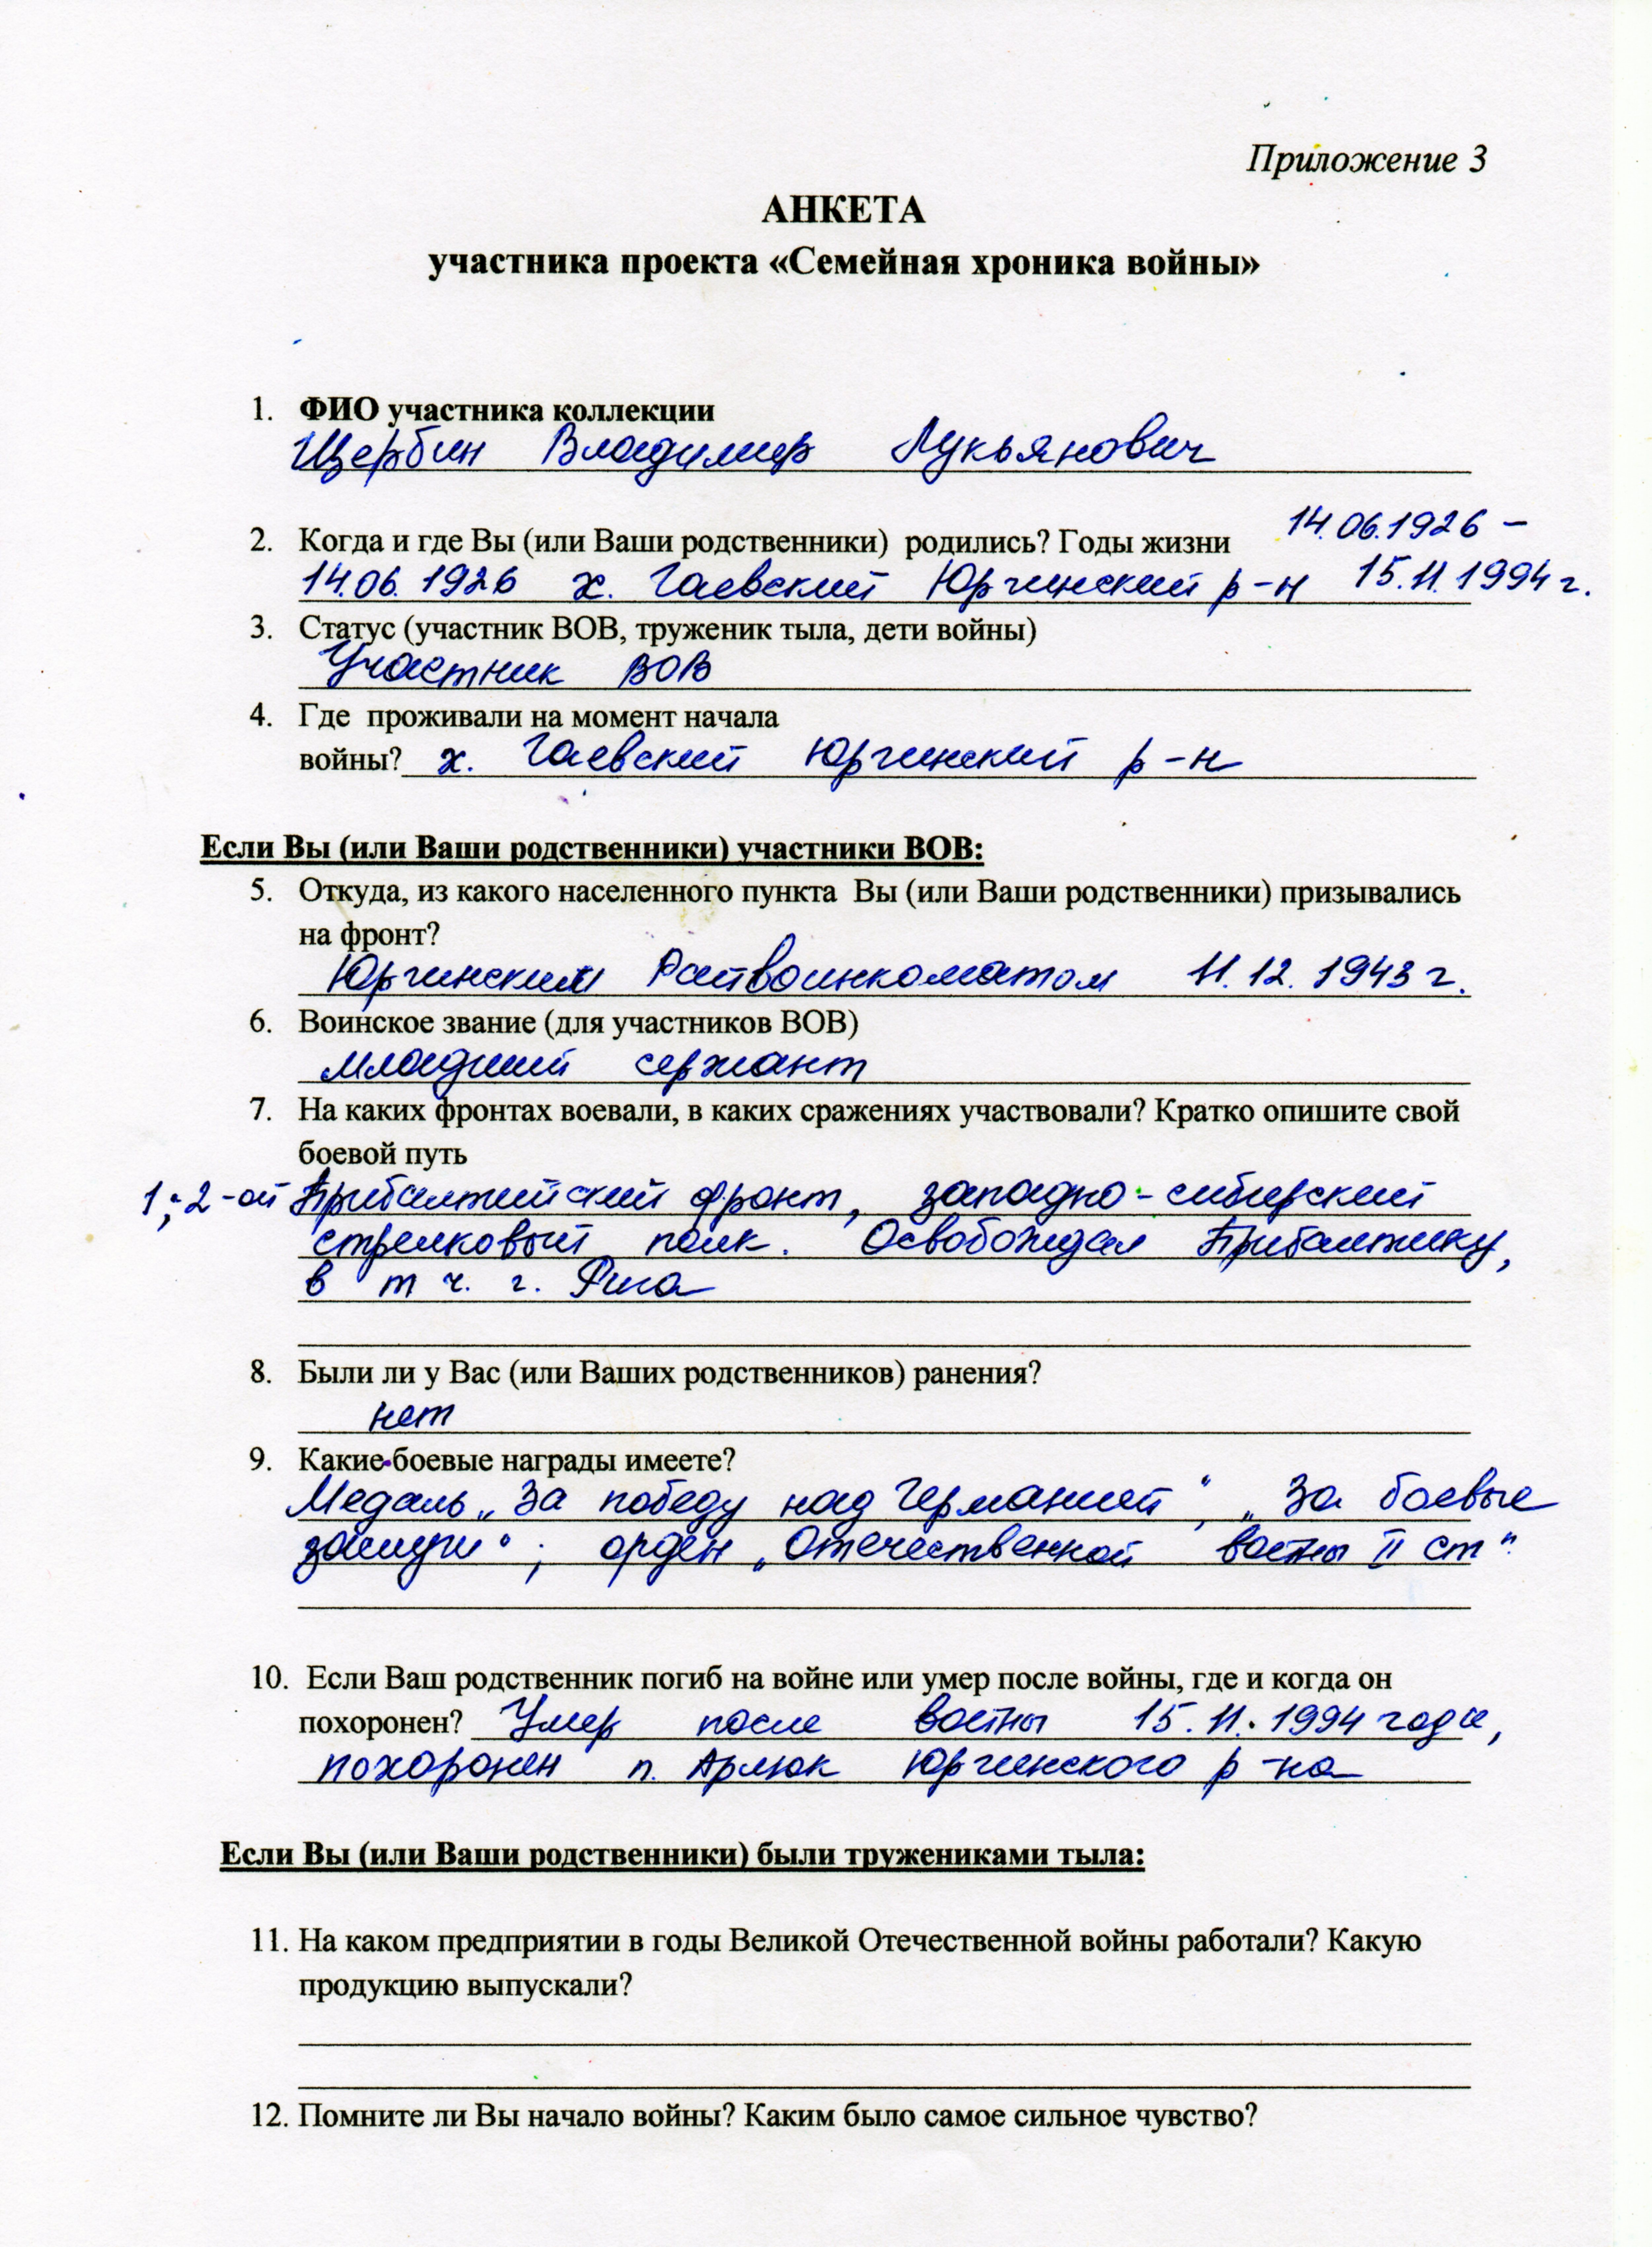 Приложение 3
АНКЕТА
участника проекта «Семейная хроника войны»
1. ФИО участника коллекции
Щербин Владимир Лукьянович
14.06.1926 –
2. Когда и где Вы (или Ваши родственники) родились? Годы жизни
14.06.1926 х. Гаевский Юргинский р-н 15.11.1994 г.
3. Статус (участник ВОВ, труженик тыла, дети войны)
Участник ВОВ
4. Где проживали на момент начала
войны? х. Гаевский Юргинский р-н
Если Вы (или Ваши родственники) участники ВОВ:
5. Откуда, из какого населенного пункта Вы (или Ваши родственники) призывались
на фронт?
Юргинским Райвоинкоматом 11.12.1943 г.
6. Воинское звание (для участников ВОВ)
младший сержант
7. На каких фронтах воевали, в каких сражениях участвовали? Кратко опишите свой
боевой путь
1; 2-ой Прибалтийский фронт, западно-сибирский
стрелковый полк. Освобождал Прибалтику,
в т ч. г. Рига
8. Были ли у Вас (или Ваших родственников) ранения?
нет
9. Какие боевые награды имеете?
Медаль „За победу над Германией", „За боевые
заслуги"; орден „Отечественной войны II ст".
10. Если Ваш родственник погиб на войне или умер после войны, где и когда он
похоронен? Умер после войны 15.11.1994 года,
похоронен п. Арлюк Юргинского р-на
Если Вы (или Ваши родственники) были тружениками тыла:
11. На каком предприятии в годы Великой Отечественной войны работали? Какую
продукцию выпускали?
12. Помните ли Вы начало войны? Каким было самое сильное чувство?